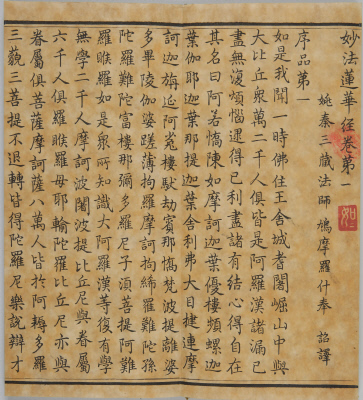 妙法蓮華經卷第一
姚秦三藏法師鳩摩羅什奉 詔譯
序品第一
如是我聞一時佛住王舍城耆闍崛山中與
大比丘眾萬二千人俱皆是阿羅漢諸漏已
盡無復煩惱逮得己利盡諸有結心得自在
其名曰阿若憍陳如摩訶迦葉優樓頻螺迦
葉伽耶迦葉那提迦葉舍利弗大目揵連摩
訶迦旃延阿㝹樓馱劫賓那憍梵波提離婆
多畢陵伽婆蹉薄拘羅摩訶拘絺羅難陀孫
陀羅難陀富樓那彌多羅尼子須菩提阿難
羅睺羅如是眾所知識大阿羅漢等復有學
無學二千人摩訶波闍波提比丘尼與眷屬
六千人俱羅睺羅母耶輸陀羅比丘尼亦與
眷屬俱菩薩摩訶薩八萬人皆於阿耨多羅
三藐三菩提不退轉皆得陀羅尼樂說辯才